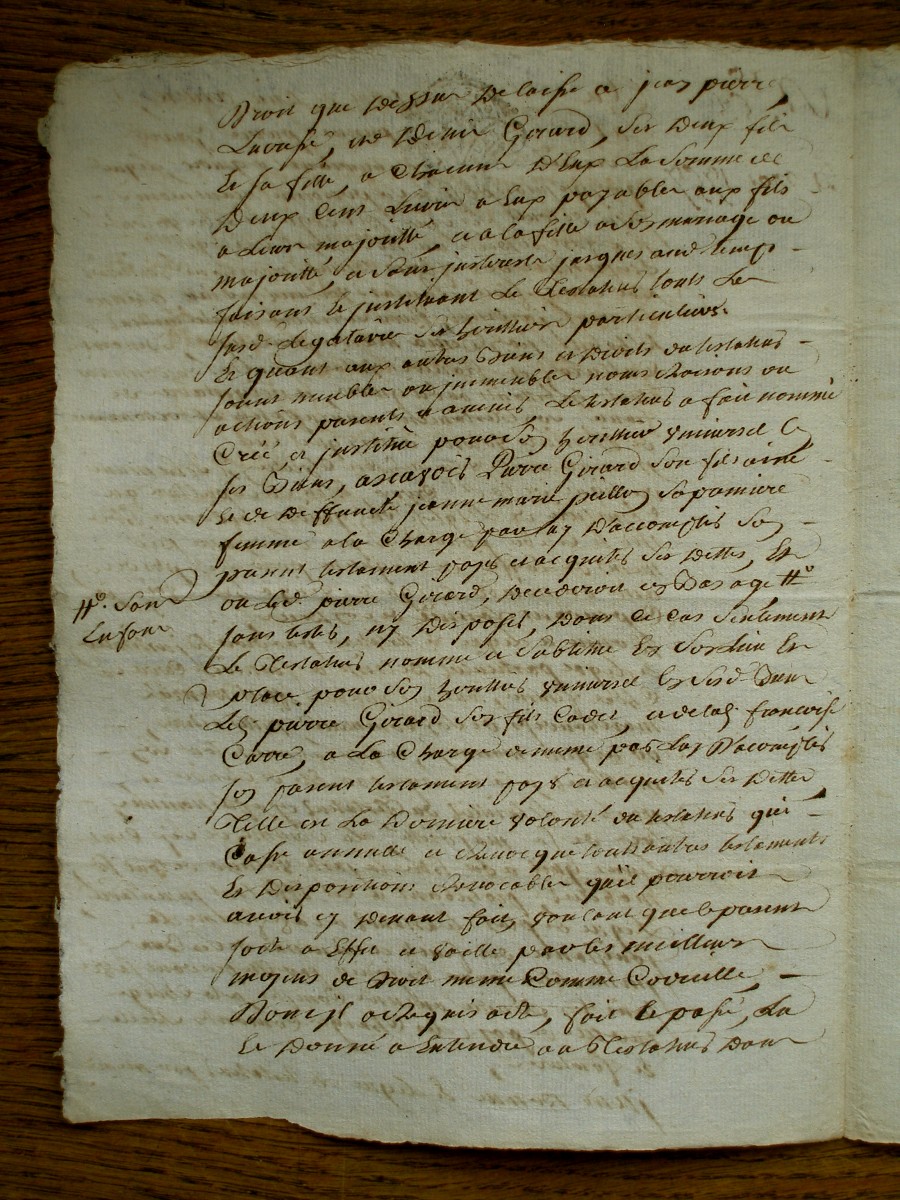 Droit que dessus delaisse a jean pierre,
et Denis Girard, ses deux fils
Et sa fille, a Chacun D'Eux La Somme de
Deux Cens Livres a Eux payables aux fils
a Leur majoritté, et a la fille a son mariage ou
majoritté, et sans jnterests jusques aud. temps
faisant et jnstituant Le Testateur touts Les
susd. Legataires ses heritiers particuliers.
Et quant aux autres Biens et Droits du testateur
soient meubles ou jmmeubles noms Raisons ou
actions presents et avenir Le testateur a fait nommé
Créé, et jnstitué pour son heritier universel Es
ses Biens, ascavoir Pierre Girard son fils ainé
Et de Deffuncte jeanne marie sa premiere
femme a la Charge par luy D'accomplir son
present testament payer et acquiter ses Dettes, Et
ou Led. pierre Girard, Decederoit En Bas age #o
#o. Sans
Enfans
sans tester, ny Disposer, Dans Ce Cas Seulement
Le Testateur nomme et Subtitue En Son Lieu Et
place pour son heritier universel Es susd. Biens
pierre Girard son fils Cadet, et de lad. francoise
Carre, a La Charge de meme par Luy D'accomplir
son present testament payer et acquiter ses Dettes
Telle est La Derniere volonté du testateur qui
Casse annulle et Revocque touts autres testaments
Et Dispositions Revocables qu'il pourroit
avoir cy Devant fait, voulant que le present
sorte a Effet et vaille par les meilleurs
moyens de Droit meme Comme Codicille,
Dont jl a Requis acte, fait Et passé, Lu
Et Donné a Entendre au Testateur Dans